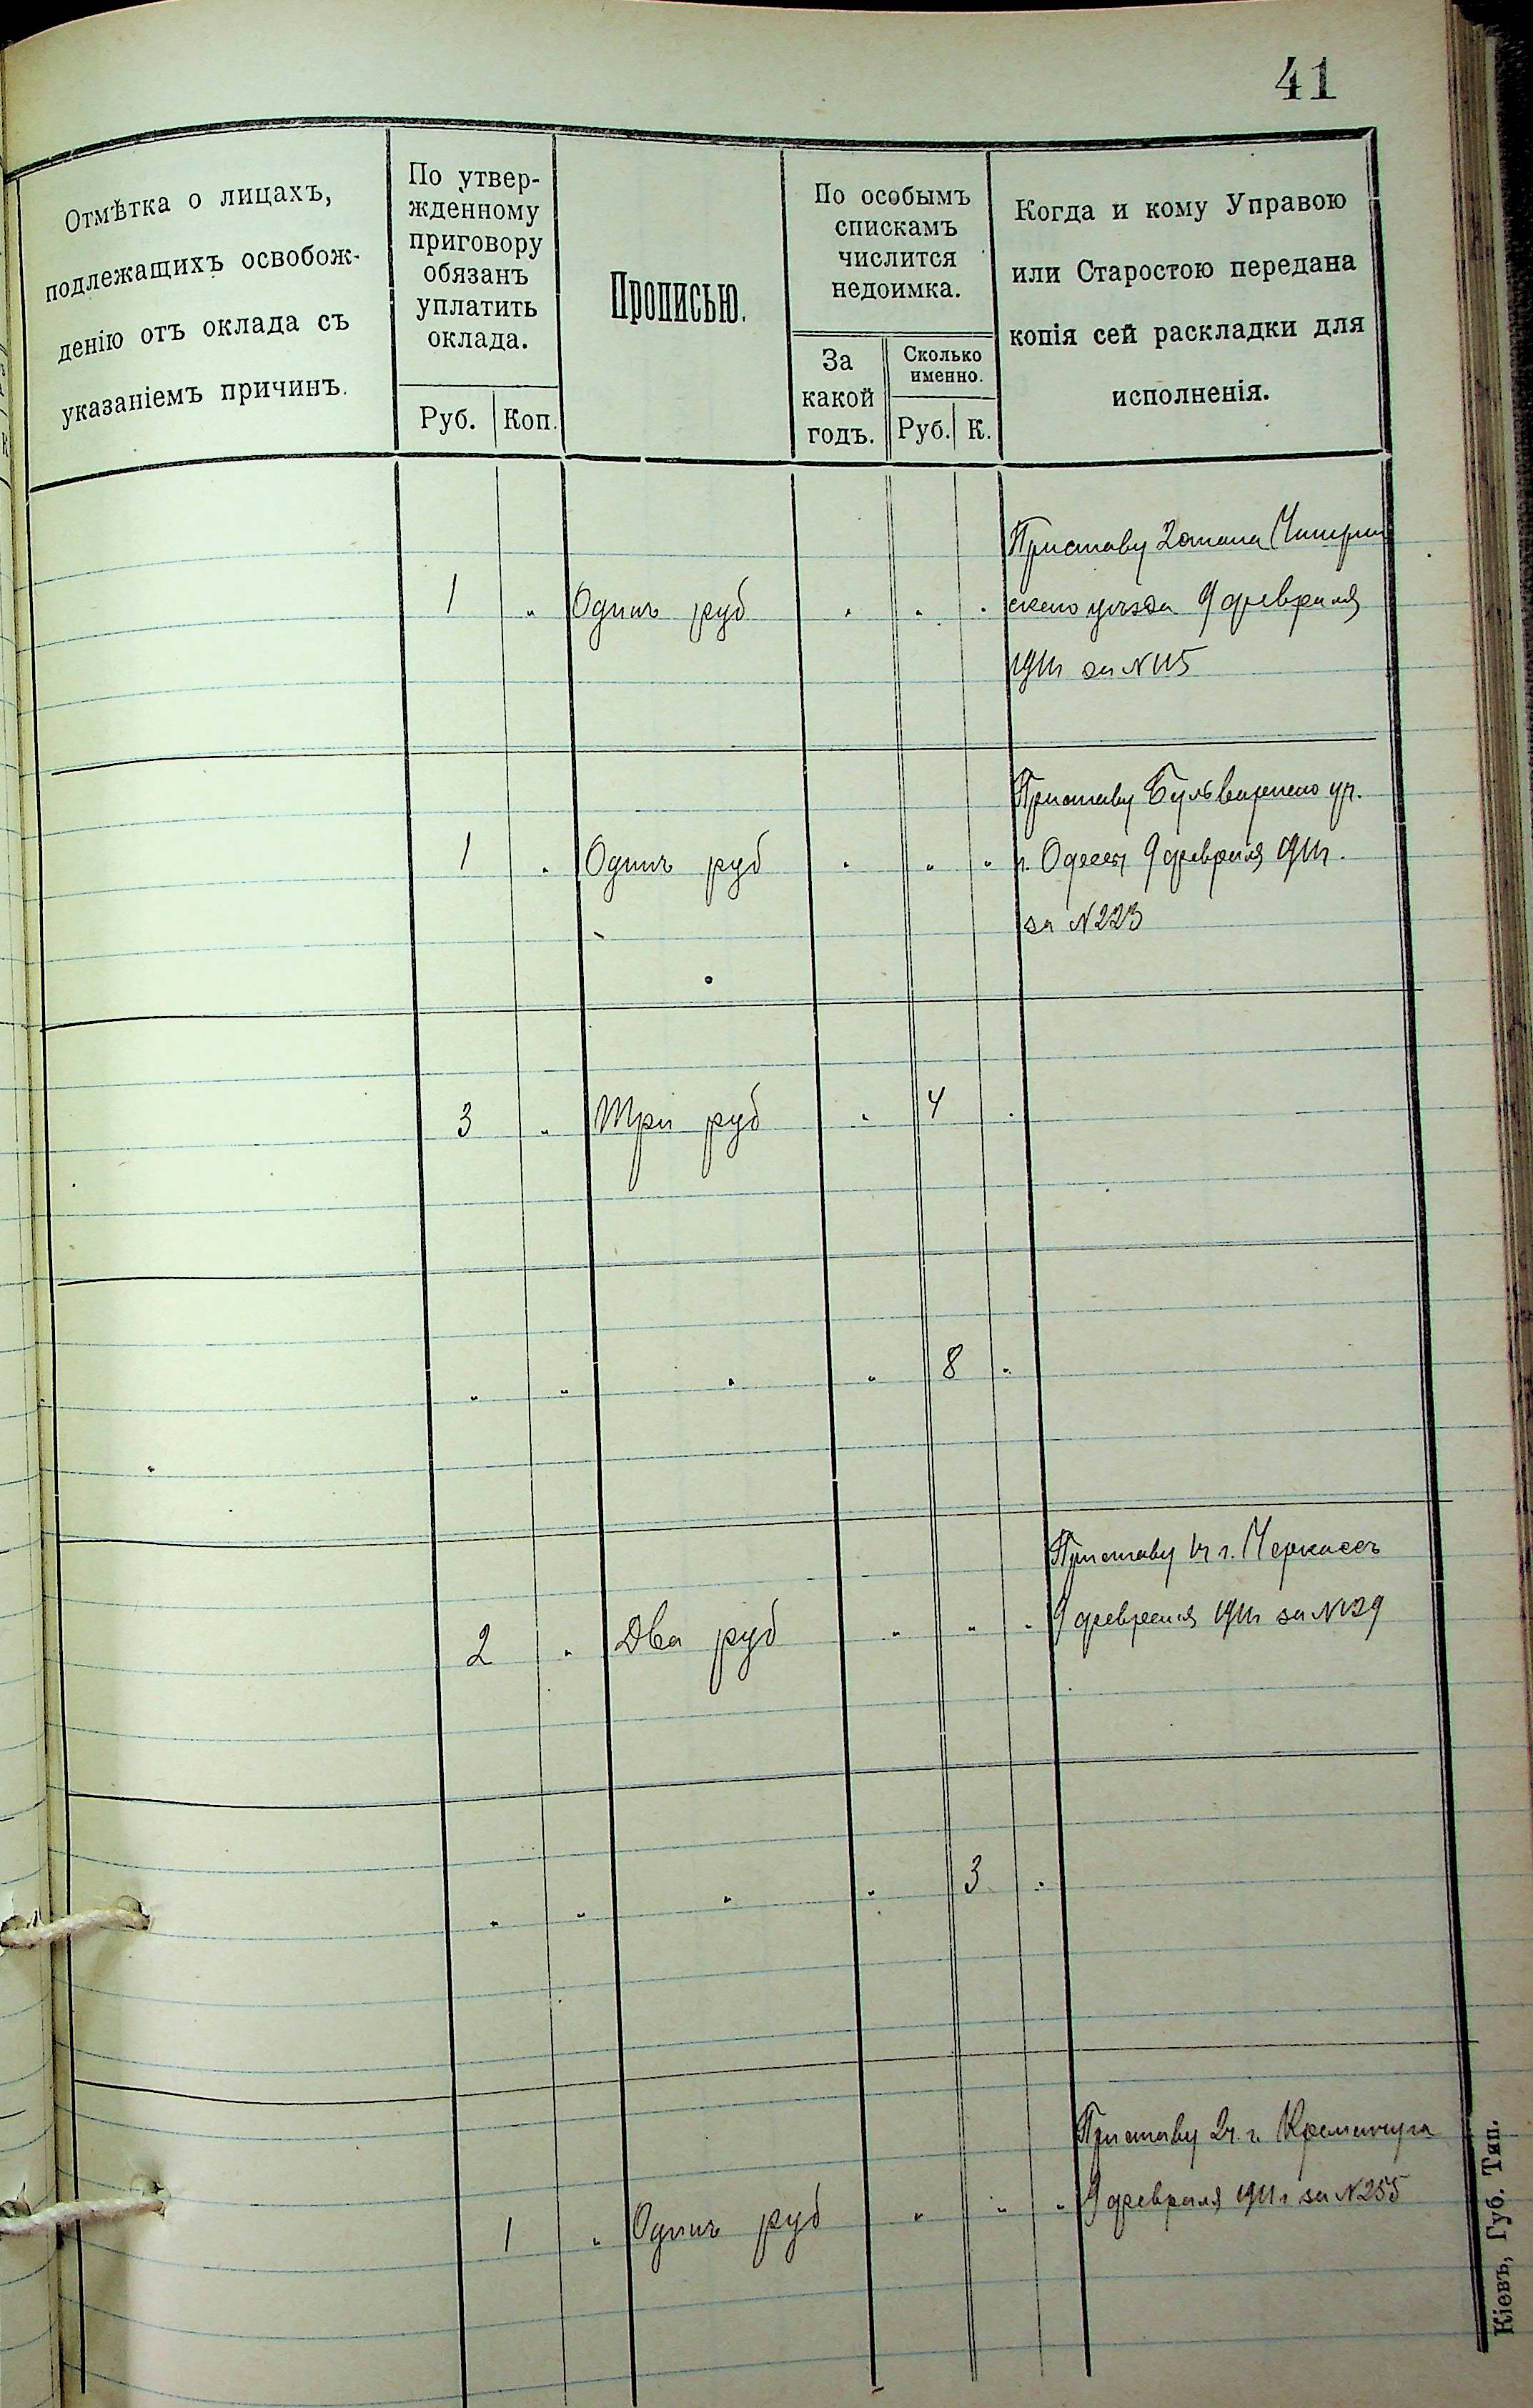 41
Отмѣтка о лицахъ,
подлежащихъ освобож-
денію отъ оклада съ
указаніемъ причинъ.
По утвер-
жденному
приговору
обязанъ
уплатить
оклада.
Руб.
Коп.
Прописью.
По особымъ
спискамъ
числится
недоимка.
За
какой
годъ.
Сколько
именно.
Руб.
К.
Когда и кому Управою
или Старостою передана
копія сей раскладки для
исполненія.
Приставу 2 стана Чигирин
1 " Одинъ руб " " " скаго уѣзда 9 февраля
1911г за N 115
Приставу Бульварнаго уч.
1 " Одинъ руб " " " г. Одессы 9 февраля 1911г.
за N 223
3 " Три руб " 4 "
" " " " 8 "
Приставу 1ч г. Черкассъ
2 " Два руб " " " 9 февраля 1911г за N 129
" " " " 3 "
Приставу 2ч. г. Кременчуга
1 " Одинъ руб " " " 9 февраля 1911 г за N 255
Кіевъ, Губ. Тип.